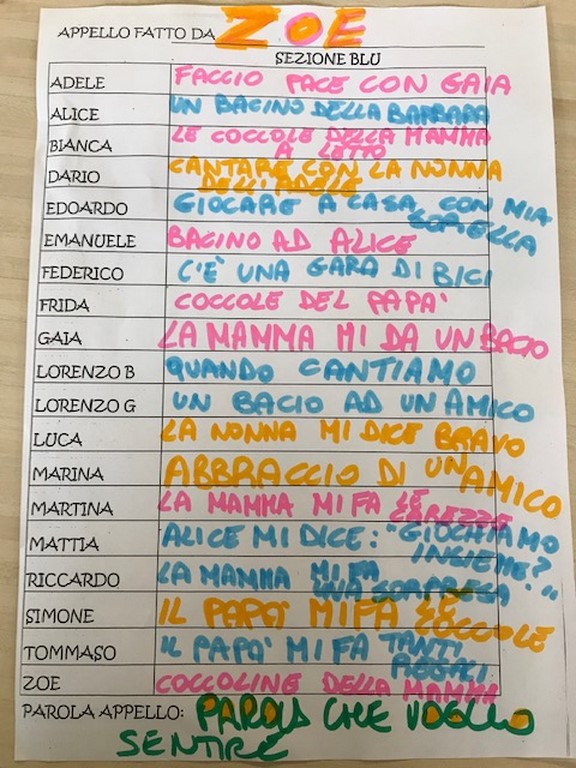 APPELLO FATTO DA ZOE
SEZIONE BLU
ADELE FACCIO PACE CON GAIA
ALICE UN BACINO DELLA BARBARA
BIANCA LE COCCOLE DELLA MAMMA
A LETTO
DARIO CANTARE CON LA NONNA
DELL'ADELE
EDOARDO GIOCARE A CASA CON MIA
SORELLA
EMANUELE BACINO AD ALICE
FEDERICO C'È UNA GARA DI BICI
FRIDA COCCOLE DEL PAPA'
GAIA LA MAMMA MI DA UN BACIO
LORENZO B QUANDO CANTIAMO
LORENZO G UN BACIO AD UN AMICO
LUCA LA NONNA MI DICE BRAVO
MARINA ABBRACCIO DI UN AMICO
MARTINA LA MAMMA MI FA LE
CAREZZE
MATTIA ALICE MI DICE: "GIOCHIAMO
INSIEME?"
RICCARDO LA MAMMA MI FA
UNA SORPRESA
SIMONE IL PAPA' MI FA LE
COCCOLE
TOMMASO IL PAPA' MI FA TANTI
REGALI
ZOE COCCOLINE DELLA MAMMA
PAROLA APPELLO: PAROLA CHE VOGLIO
SENTIRE